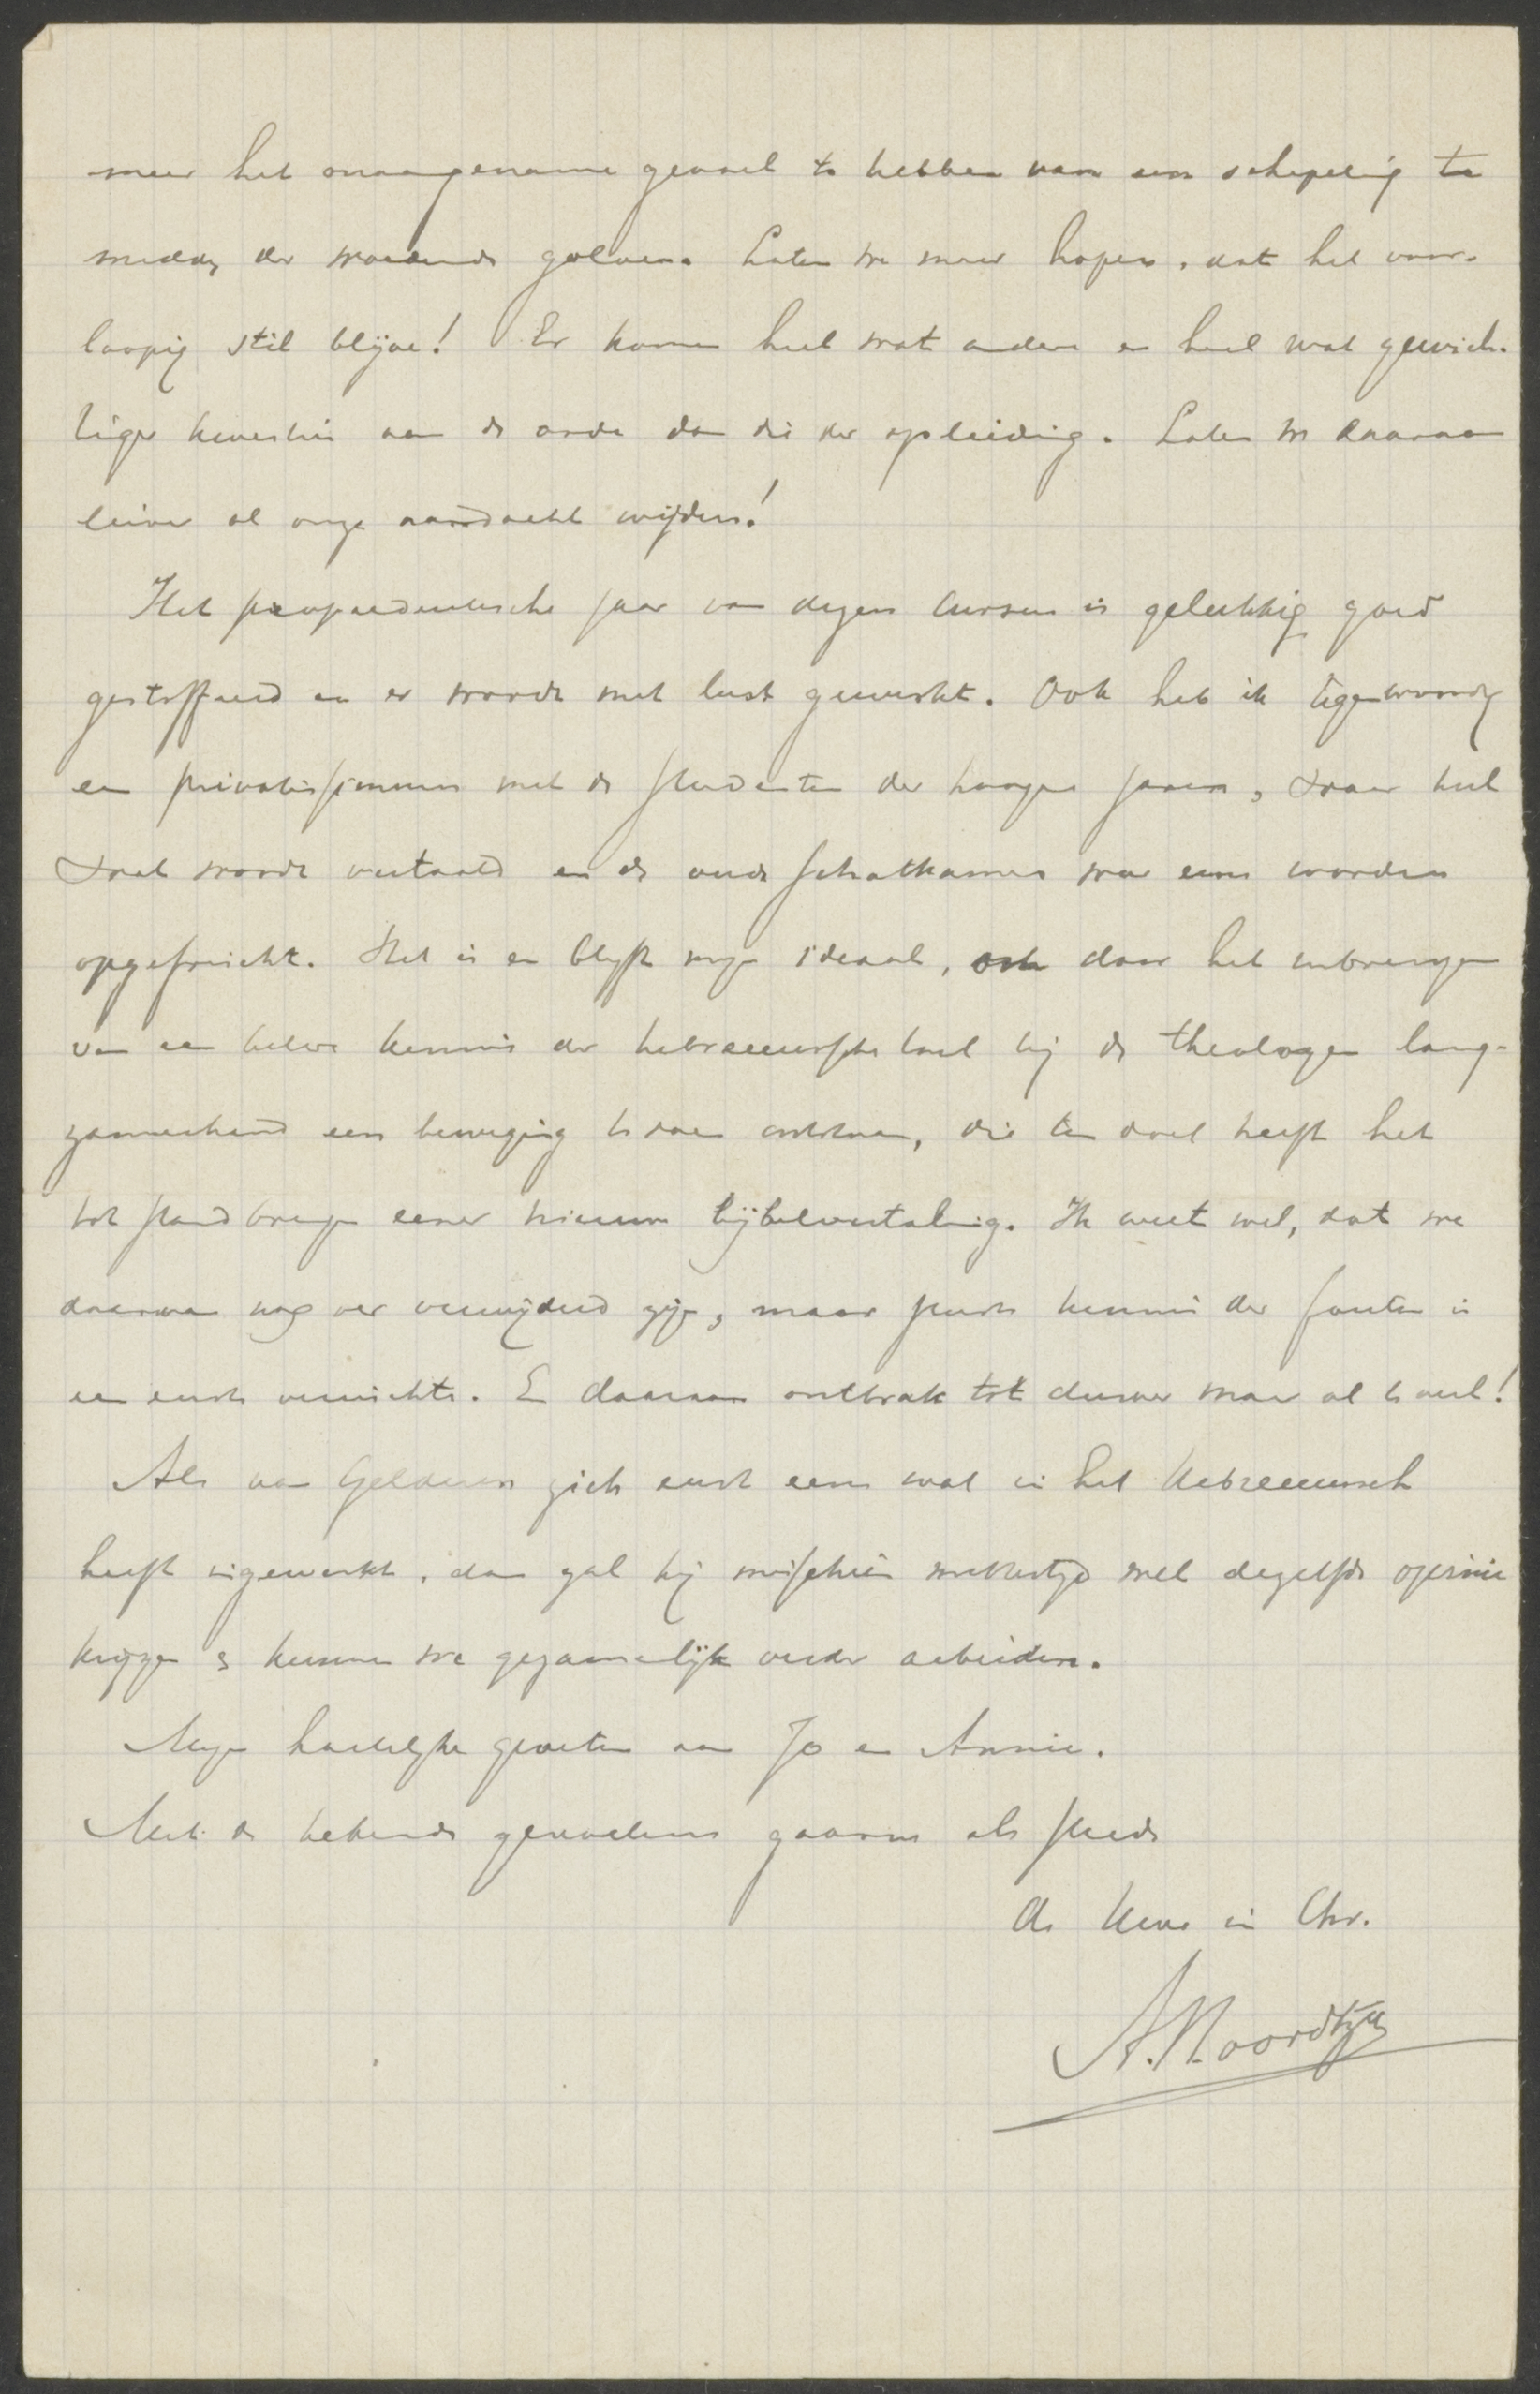 meer het onaangename gevoel te hebben van een schepeling te
midden der woedende golven. Laten we maar hopen, dat het voor-
loopig stil blijve! Er komen heel wat andere en heel wat gewich-
tiger kwesties aan de orde dan die der opleiding. Laten we daaraan
liever al onze aandacht wijden!
Het propaedeutische jaar van dezen cursus is gelukkig goed
gestoffeerd en er wordt met lust gewerkt. Ook heb ik tegenwoordig
een privatissimum met de studenten der hoogere jaren, waar heel
wat wordt vertaald en de oude schatkamers weer eens worden
opgefrischt. Het is en blijft mijn ideaal, ook door het inbrengen
van een betere kennis der hebreeuwsche taal bij de theologen lang-
zamerhand een beweging te doen ontstaan, die ten doel heeft het
tot stand brengen eener nieuwe bijbelvertaling. Ik weet wel, dat we
daarvan nog ver verwijderd zijn, maar kennis der fouten is
een eerste vereischte. En daaraan ontbrak tot dusver maar al te veel!
Als van Gelderen zich eerst eens wat in het Hebreeuwsch
heeft ingewerkt, dan zal hij misschien mettertijd wel dezelfde opinie
krijgen & kunnen we gezamenlijk verder arbeiden.
Mijn hartelijke groeten aan Jo en Annie.
Met de bekende gevoelens gaarne als steeds
de Uwe in Chr.
A. Noordtzij